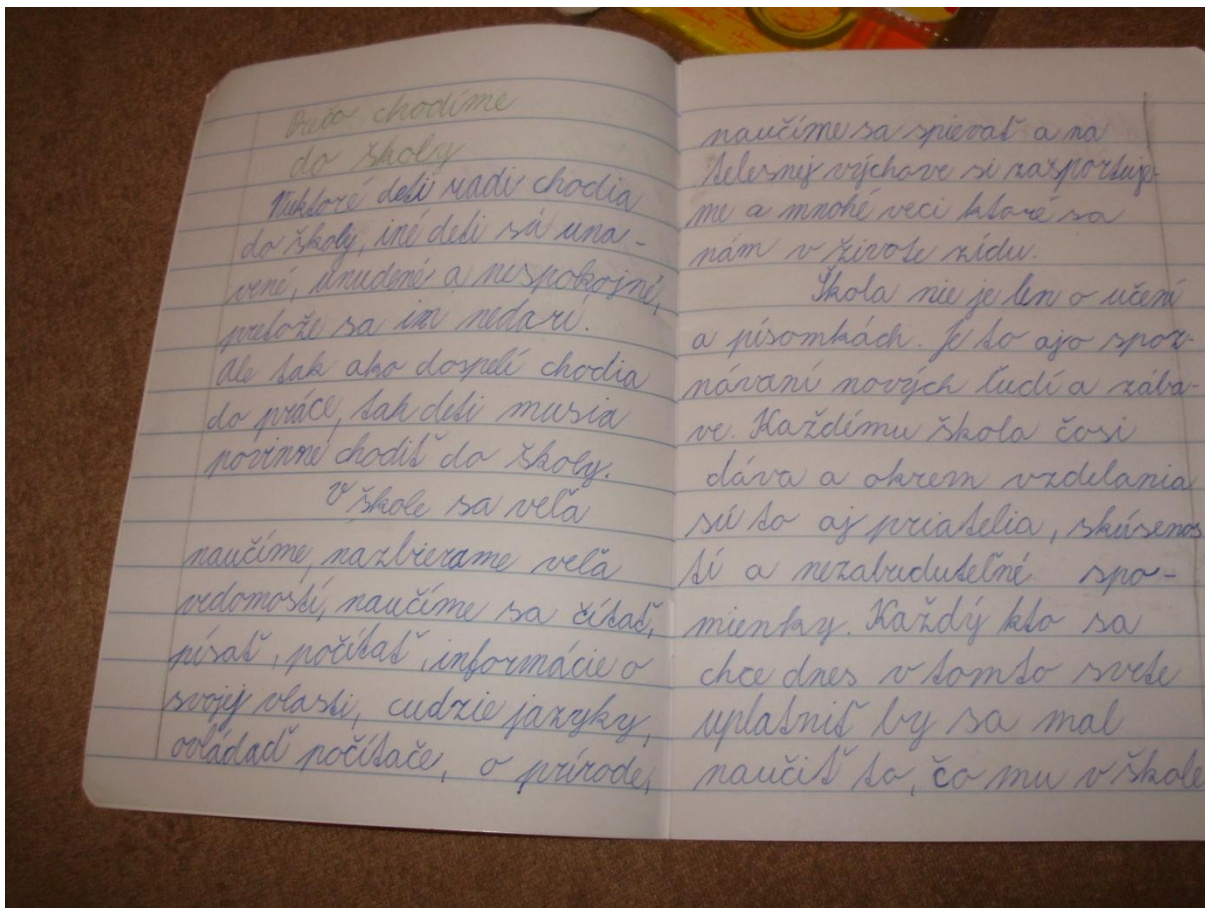 Prečo chodíme
do školy
Niektoré deti radi chodia
do školy, iné deti sú una-
vené, unudené a nespokojné,
pretože sa im nedarí.
Ale tak ako dospelí chodia
do práce, tak deti musia
povinné chodiť do školy.
V škole sa veľa
naučíme, nazbierame veľa
vedomostí, naučíme sa čítať,
písať, počítať, informácie o
svojej vlasti, cudzie jazyky,
ovládať počítače, o prírode,
naučíme sa spievať a na
telesnej výchove si zašportuje-
me a mnohé veci ktoré sa
nám v živote zídu.
Škola nie je len o učení
a písomkách. Je to ajo spoz-
návaní nových ľudí a zába-
ve. Každému škola čosi
dáva a okrem vzdelania
sú to aj priatelia, skúsenos
tí a nezabuduteľné spo-
mienky. Každý kto sa
chce dnes v tomto svete
uplatniť by sa mal
naučiť to, čo mu v škole